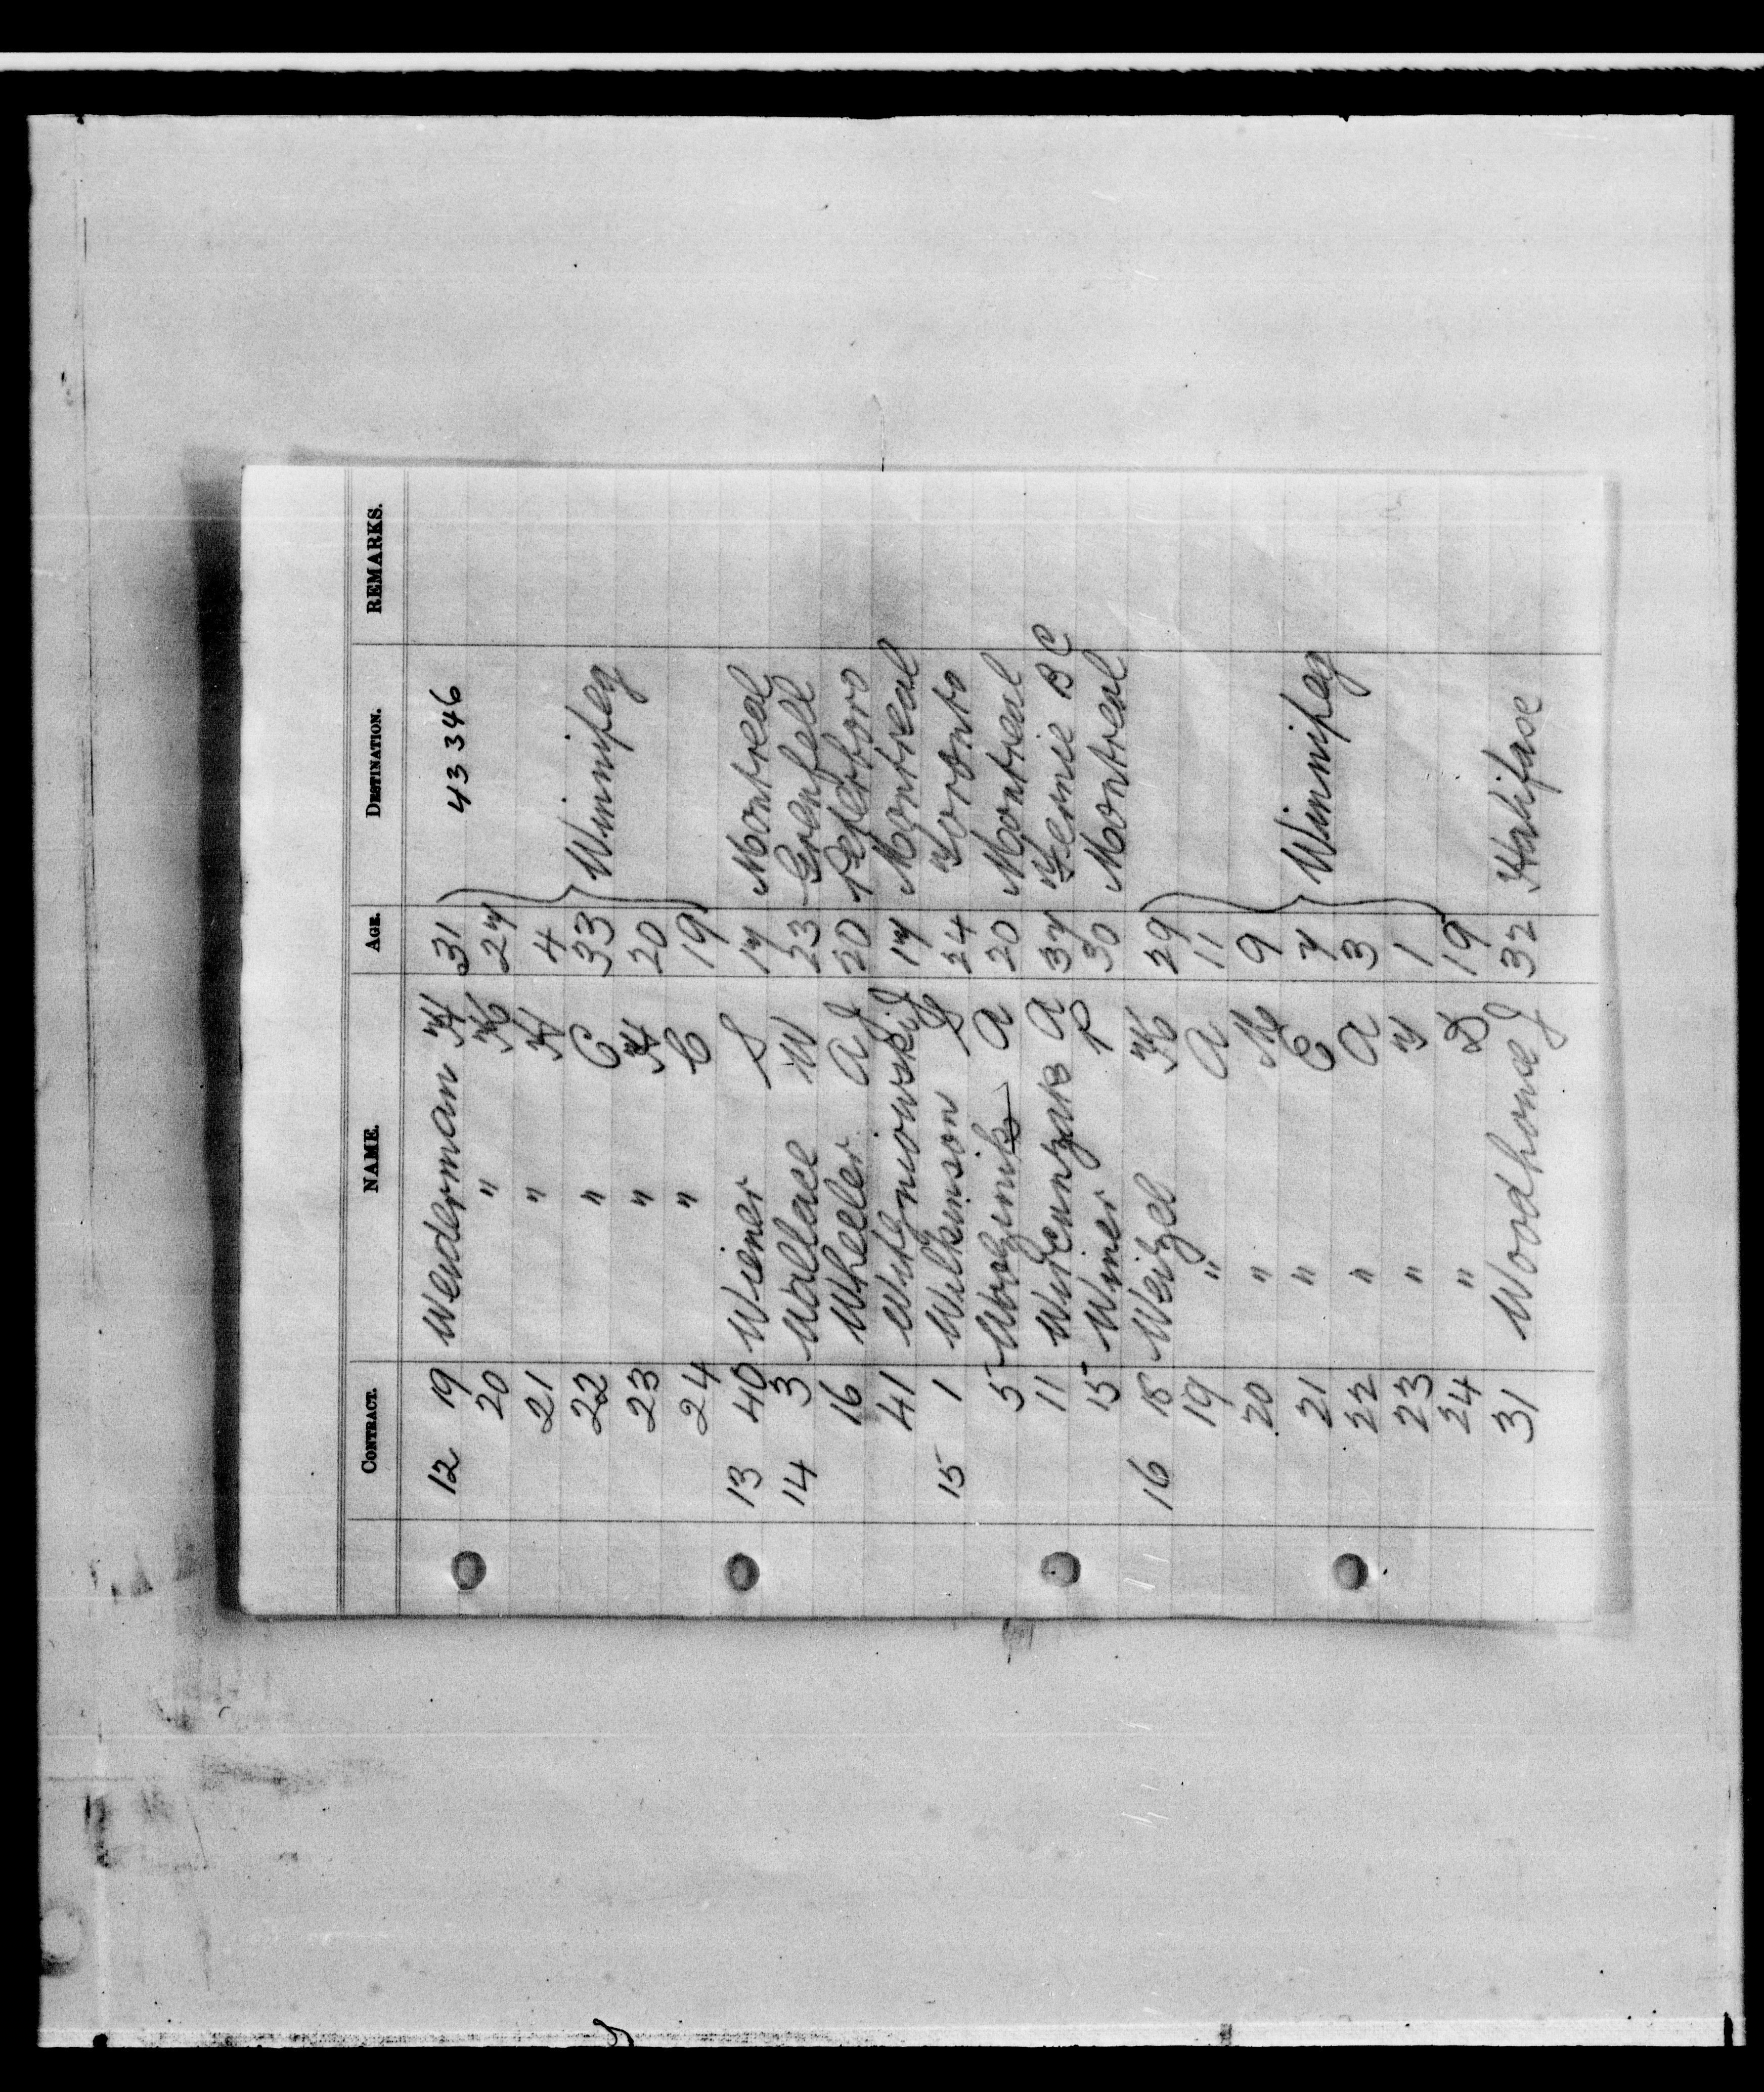 CONTRACT. NAME. AGE. DESTINATION. REMARKS.
43346
12 19 Weiderman H 31
20 " H 27
21 " H 4
22 " C 33 Winnipeg
23 " H 20
24 " C 19
13 40 Wiener S 17 Montreal
14 3 Wallace W 23 Grenfell
16 Wheeler A J 20 Peterboro
41 J 17 Montreal
15 1 Wilkinson S 24 Toronto
5 A 20 Montreal
11 A 37 Fernie BC
15 Winer P 30 Montreal
16 18 Weitzel 29
19 " A 11
20 " M 9
21 " E 7 Winnipeg
22 " A 3
23 " 1
24 " D 19
31 Woodhouse J 32 Halifase